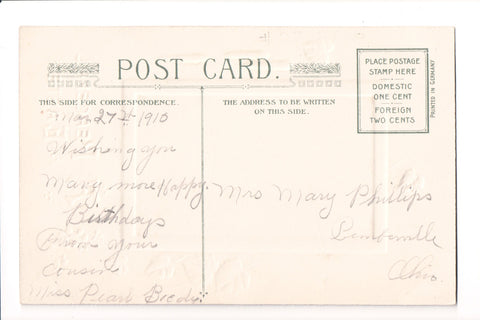 POST CARD.
THIS SIDE FOR CORRESPONDENCE.
THE ADDRESS TO BE WRITTEN
ON THIS SIDE.
PLACE POSTAGE
STAMP HERE
DOMESTIC
ONE CENT
FOREIGN
TWO CENTS
PRINTED IN GERMANY
Mar 27th 1910
Wishing you
Many more Happy
Birthdays
From your
Cousin
Miss Pearl
Mrs Mary Phillips
Ohio.